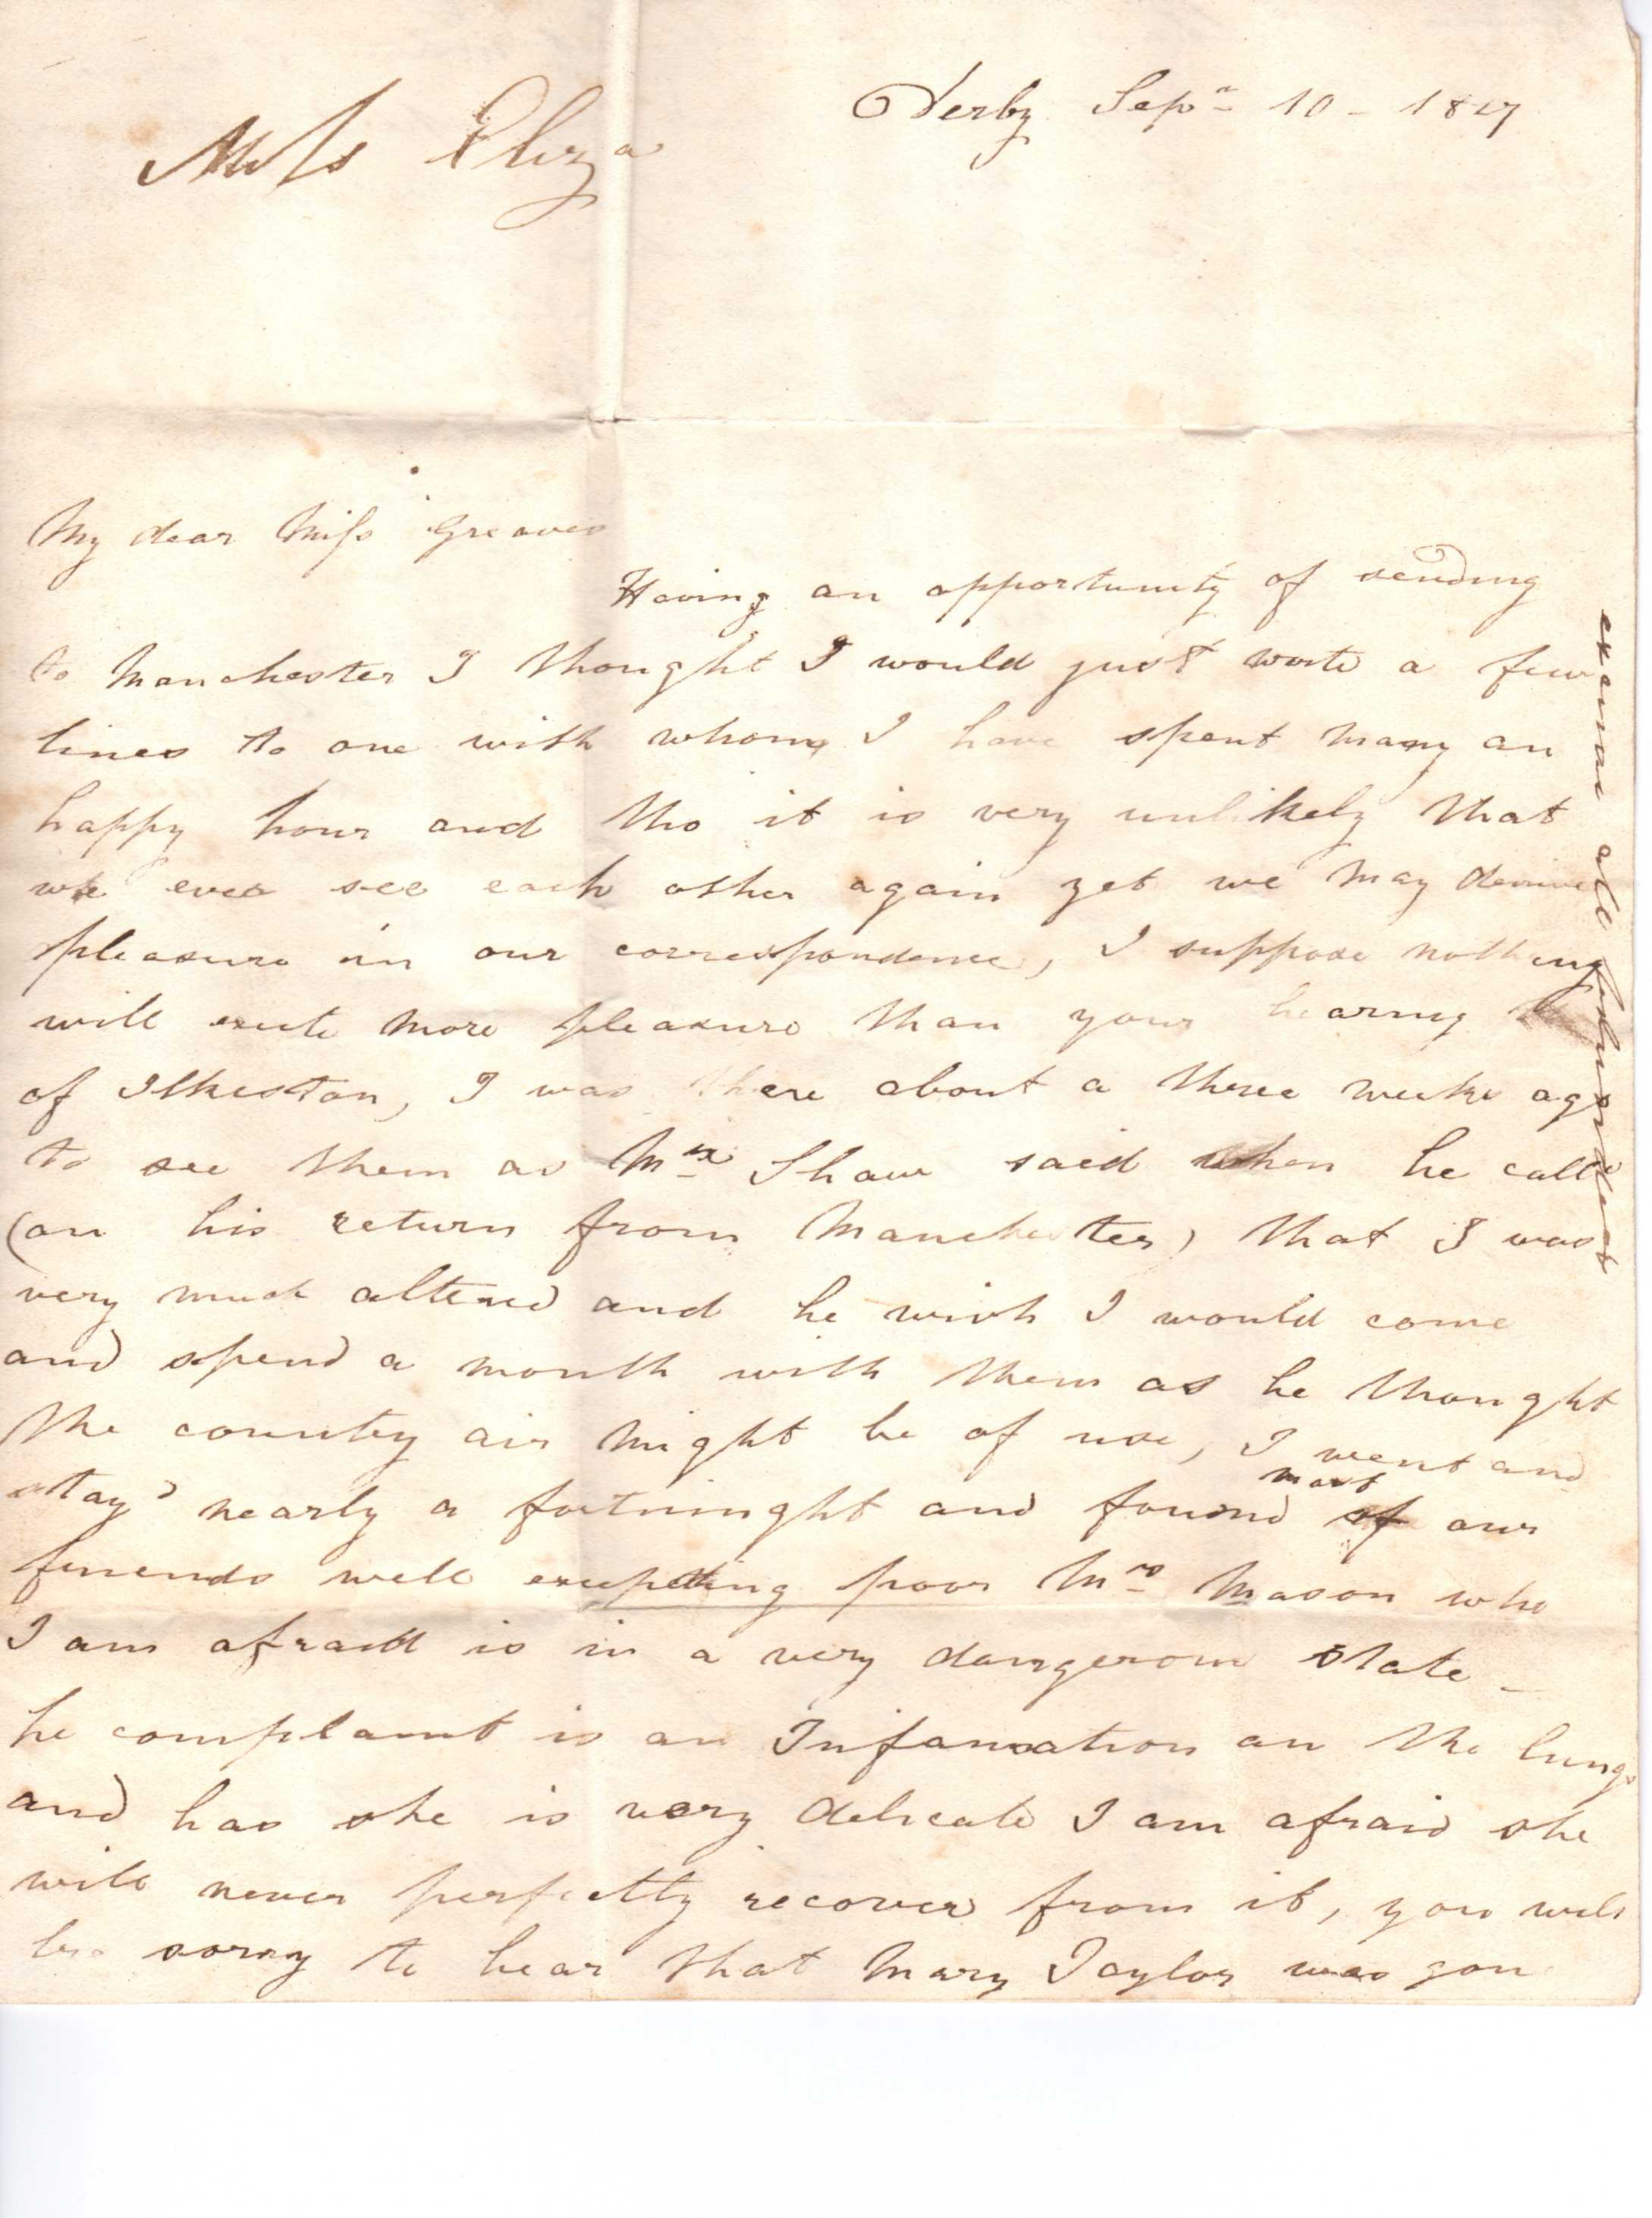 Derby Sepr 10 - 1827
Miss Eliza
My dear Miss Greaves
Having an opportunity of sending
to Manchester I thought I would just write a few
lines to one with whom I have spent many an
happy hour and tho it is very unlikely that
we ever see each other again yet we may derive
pleasure in our correspondence, I suppose nothing
will excite more pleasure than your hearing
of Ilkeston, I was there about a three weeks ago
to see them as Mr Shaw said when he call'd
(on his return from Manchester) that I was
very much altered and he wish I would come
and spend a month with them as he thought
the country air might be of use, I went and
stay'd nearly a fortninght and found most our
friends well excepting poor Mrs Mason who
I am afraid is in a very dangerous state -
he complaint is an Infamation on the lungs
and has she is very delicate I am afraid she
will never perfectly recover from it, you will
be sorry to hear that Mary Taylor was gon
excuse all